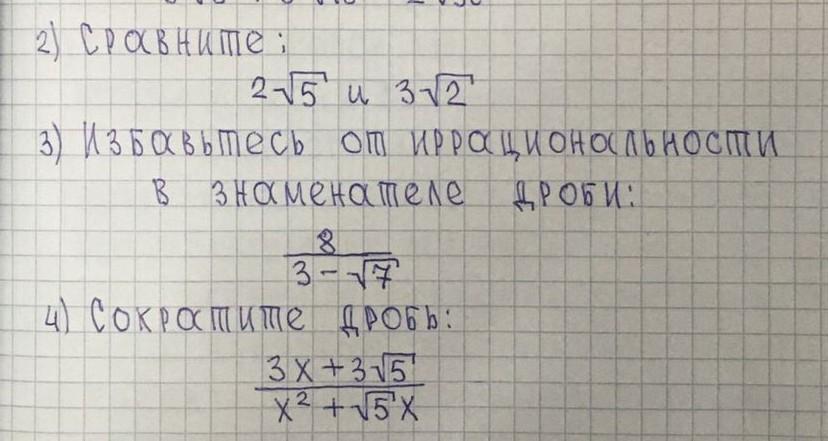 2) Сравните:
2√5 и 3√2
3) Избавьтесь от иррациональности
в знаменателе дроби:
8
3 - √7
4) Сократите дробь:
3x + 3√5
x² + √5x